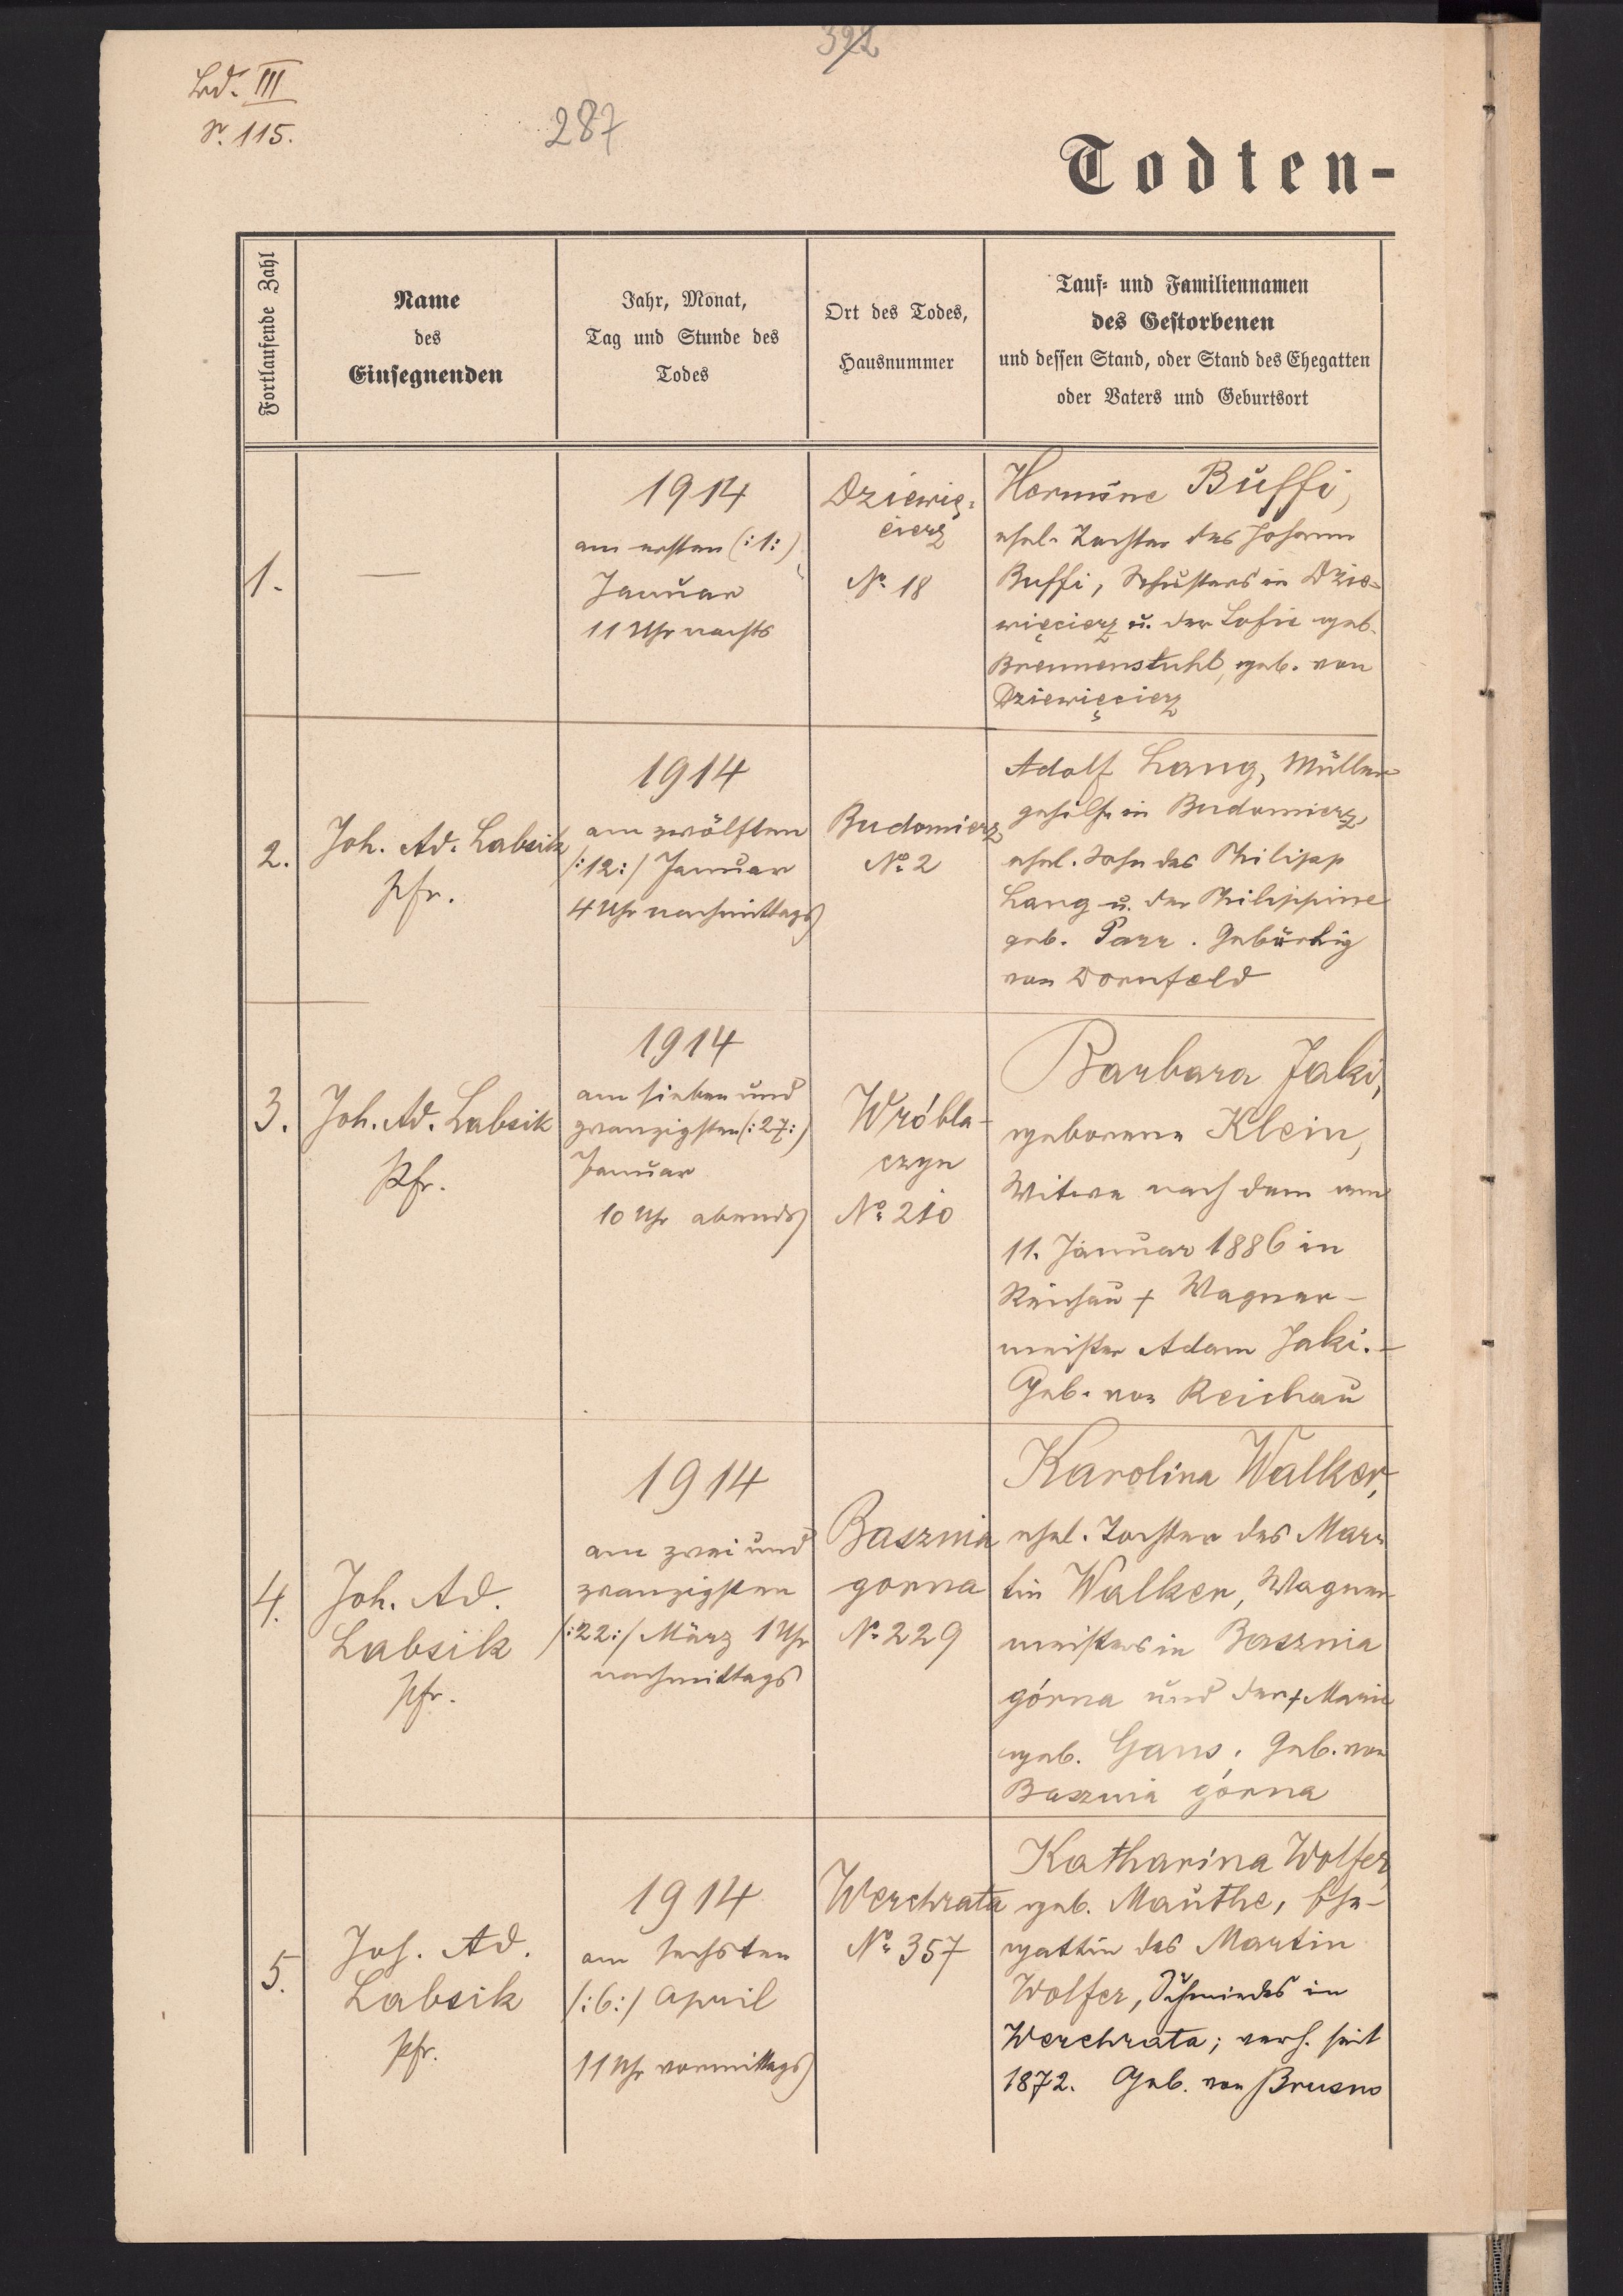 392
Bd. III
S. 115.
287
Todten-
Fortlaufende Zahl
Name
des
Einsegnenden
Jahr, Monat,
Tag und Stunde des
Todes
Ort des Todes,
Hausnummer
Tauf- und Familiennamen
des Gestorbenen
und dessen Stand, oder Stand des Ehegatten
oder Vaters und Geburtsort
1.
—
1914
am ersten (:1:)
Januar
11 Uhr nachts
Dziewię-
cierz
No 18
Hermine Buffi,
ehel. Tochter des Johann
Buffi, Schusters in Dzie-
więcierz u. der Sofie geb.
Brennenstuhl, geb. von
Dziewięcierz
2.
Joh. Ad. Labsik
Pfr.
1914
am zwölften
/:12:/ Januar
4 Uhr nachmittags
Budomierz
No 2
Adolf Lang, Müller-
gehilfe in Budomierz,
ehel. Sohn des Philipp
Lang u. der Philippine
geb. Parr. Gebürtig
von Dornfeld
3.
Joh. Ad. Labsik
Pfr.
1914
am sieben und
zwanzigsten (:27:)
Januar
10 Uhr abends
Wróbla-
czyn
No 210
Barbara Jaki,
geborene Klein,
Witwe nach dem am
11. Januar 1886 in
Reichau + Wagner-
meister Adam Jaki.-
Geb. von Reichau
4.
Joh. Ad.
Labsik
Pfr.
1914
am zwei und
zwanzigsten
/:22:/ März 1 Uhr
nachmittags
Basznia
gorna
No 229
Karolina Walker,
ehel. Tochter des Mar-
tin Walker, Wagner-
meisters in Basznia
górna und der + Marie
geb. Gans. Geb. von
Basznia górna
5.
Joh. Ad.
Labsik
Pfr.
1914
am sechsten
/:6:/ April
11 Uhr vormittags
Werchrata
No 357
Katharina Wolfer,
geb. Mauthe, Ehe-
gattin des Martin
Wolfer, Schmiedes in
Werchrata; verh. seit
1872. Geb. von Brusno